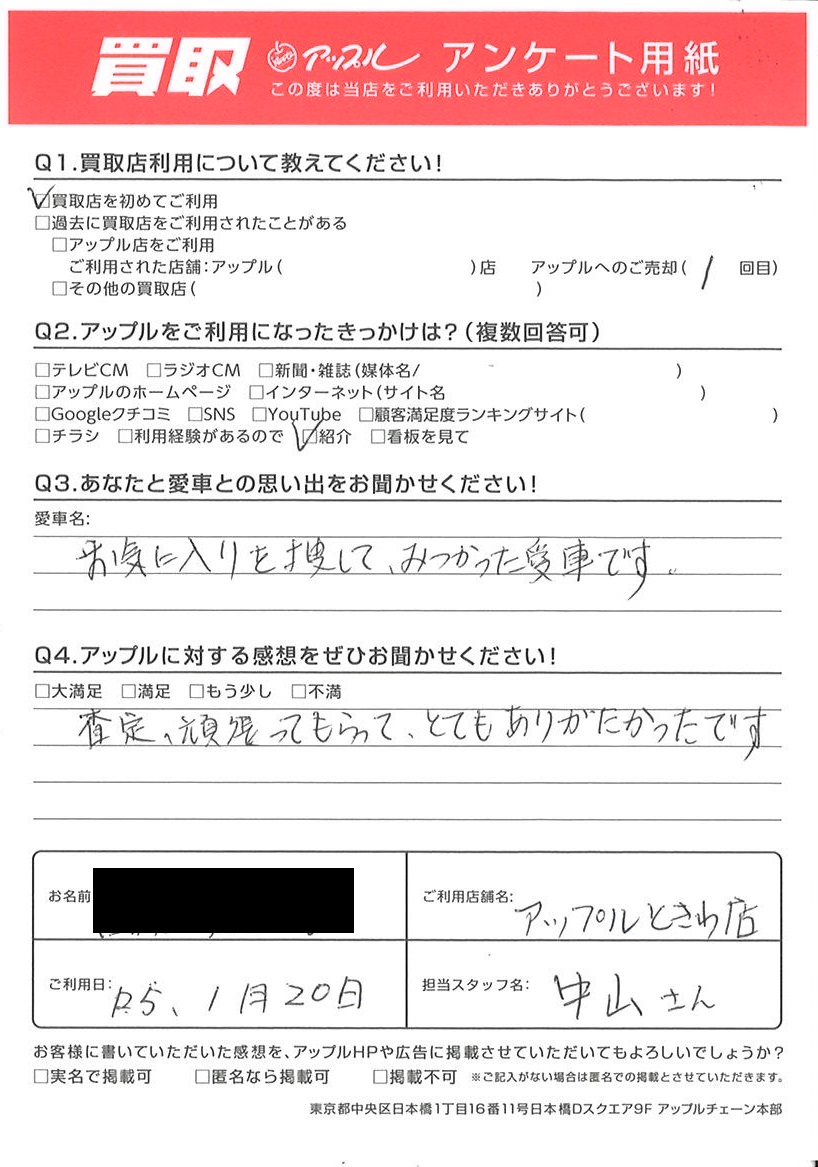 買取 アップル アンケート用紙
この度は当店をご利用いただきありがとうございます!
Q1.買取店利用について教えてください!
☑買取店を初めてご利用
□過去に買取店をご利用されたことがある
□アップル店をご利用
ご利用された店舗:アップル( )店 アップルへのご売却( 1 回目)
□その他の買取店( )
Q2.アップルをご利用になったきっかけは?(複数回答可)
□テレビCM □ラジオCM □新聞・雑誌(媒体名/ )
□アップルのホームページ □インターネット(サイト名 )
□Googleクチコミ □SNS □YouTube □顧客満足度ランキングサイト( )
□チラシ □利用経験があるので ☑紹介 □看板を見て
Q3.あなたと愛車との思い出をお聞かせください!
愛車名:
お気に入りを捜して、みつかった愛車です。
Q4.アップルに対する感想をぜひお聞かせください!
□大満足 □満足 □もう少し □不満
査定、頑張ってもらって、とてもありがたかったです
お名前
ご利用店舗名: アップルときわ店
ご利用日: R5、1月20日
担当スタッフ名: 中山さん
お客様に書いていただいた感想を、アップルHPや広告に掲載させていただいてもよろしいでしょうか?
□実名で掲載可 □匿名なら掲載可 □掲載不可 ※ご記入がない場合は匿名での掲載とさせていただきます。
東京都中央区日本橋1丁目16番11号日本橋Dスクエア9F アップルチェーン本部